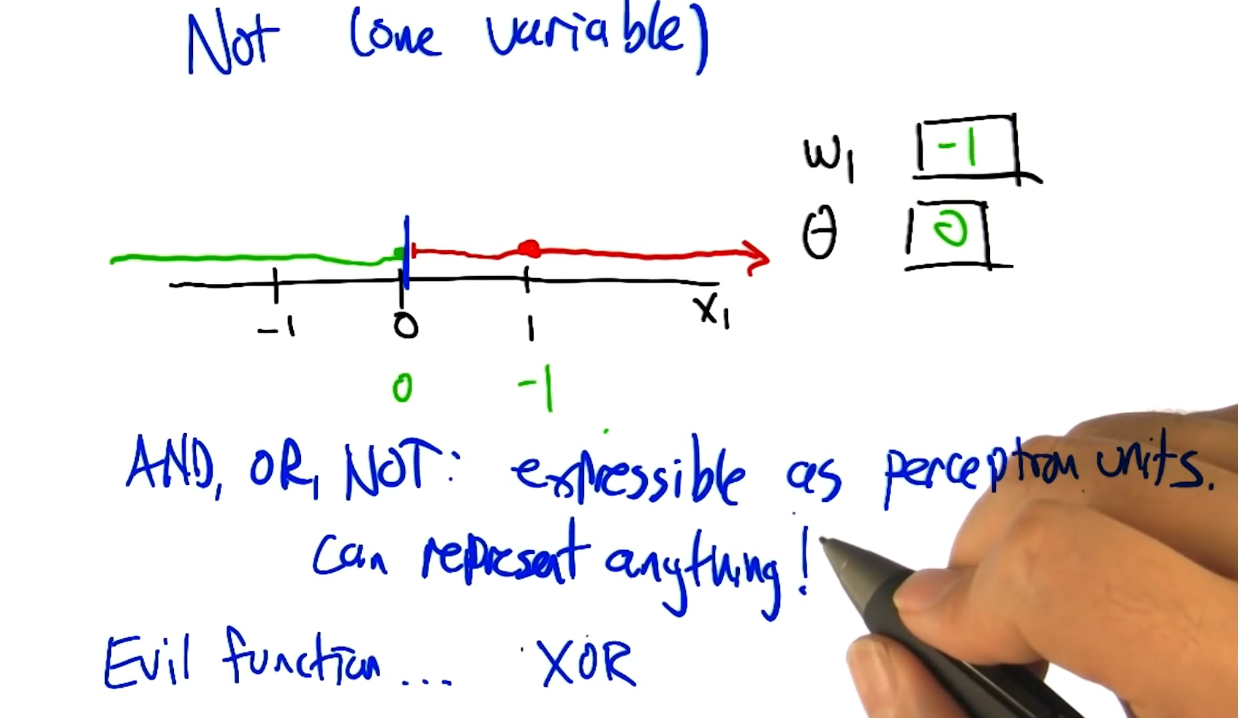 Not (one variable)
w1 -1
θ 0
-1 0 1 x1
0 -1
AND, OR, NOT: expressible as perceptron units.
can represent anything!
Evil function... XOR